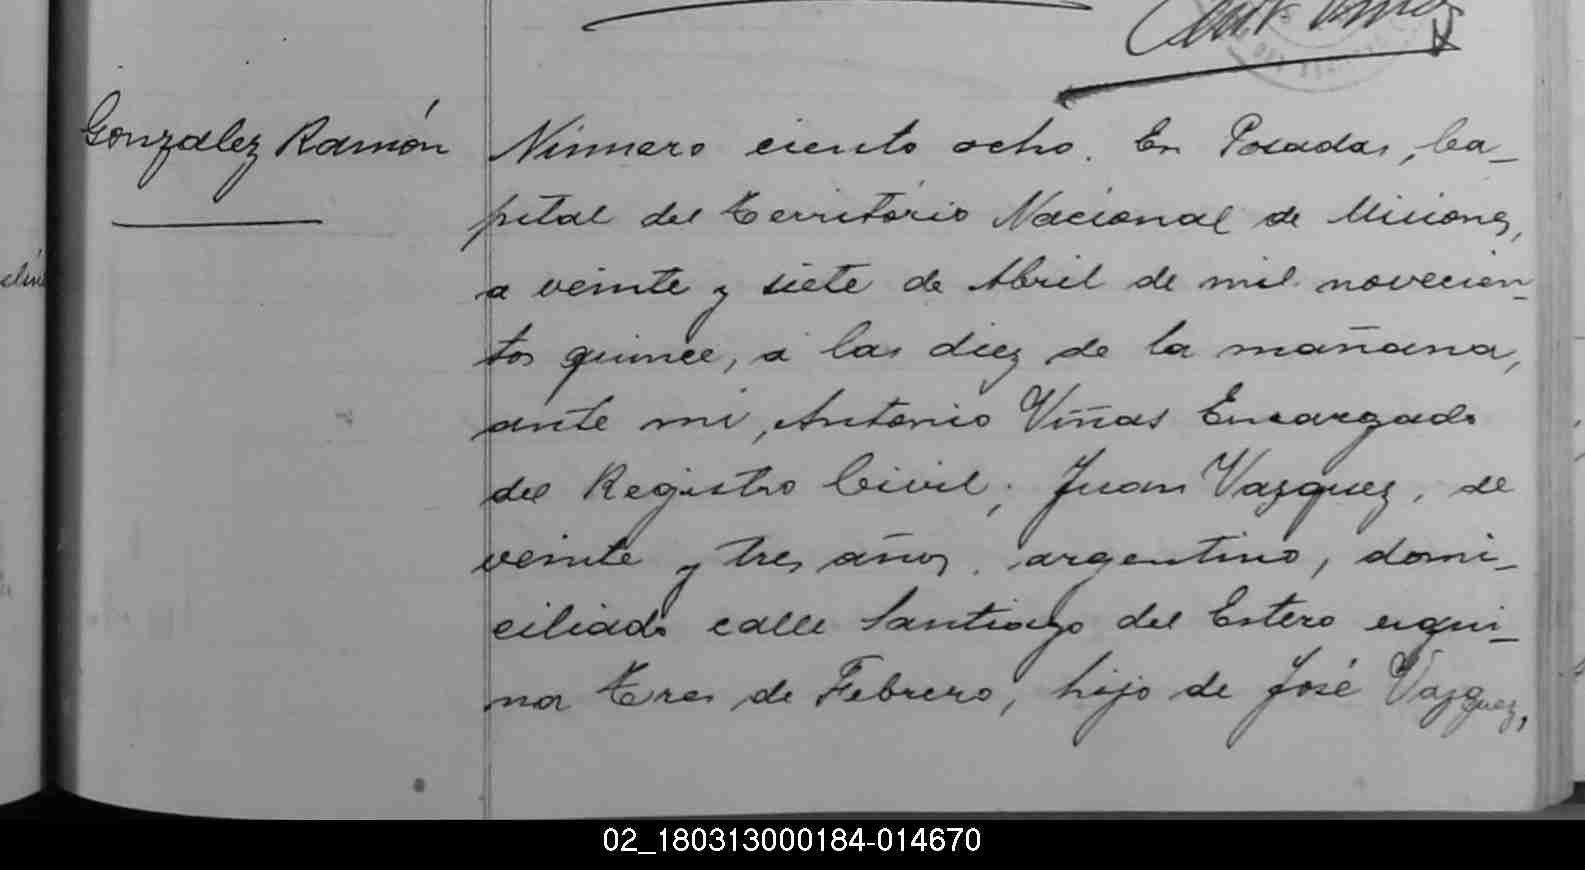 González Ramón
Número ciento ocho. En Posadas, Ca-
pital del Territorio Nacional de Misiones,
a veinte y siete de Abril de mil novecien-
tos quince, á las diez de la mañana,
ante mí, Antonio Viñas Encargado
del Registro Civil; Juan Vazquez, de
veinte y tres años, argentino, domi-
ciliado calle Santiago del Estero esqui-
na Tres de Febrero, hijo de José Vazquez,
02_180313000184-014670